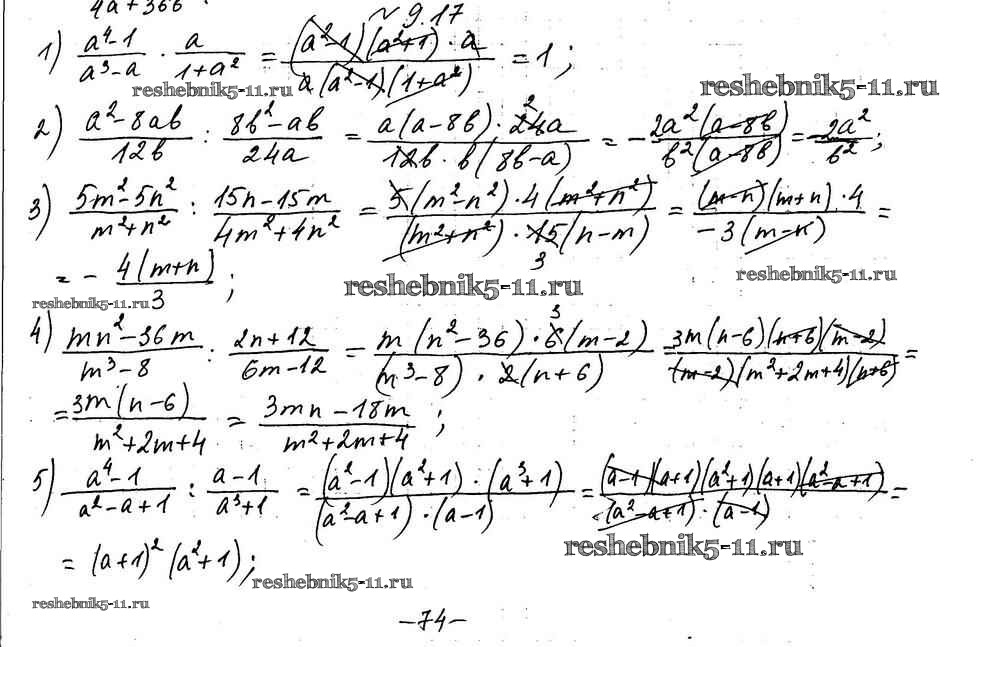 4a+36b
~ 9.17
1) \frac{a^4-1}{a^3-a} \cdot \frac{a}{1+a^2} = \frac{(a^2-1)(a^2+1) \cdot a}{a(a^2-1)(1+a^2)} = 1;
reshebnik5-11.ru
reshebnik5-11.ru
2) \frac{a^2-8ab}{12b} : \frac{8b^2-ab}{24a} = \frac{a(a-8b) \cdot \overset{2}{24}a}{12b \cdot b(8b-a)} = -\frac{2a^2(a-8b)}{b^2(a-8b)} = -\frac{2a^2}{b^2};
3) \frac{5m^2-5n^2}{m^2+n^2} : \frac{15n-15m}{4m^2+4n^2} = \frac{5(m^2-n^2) \cdot 4(m^2+n^2)}{(m^2+n^2) \cdot \underset{3}{15}(n-m)} = \frac{(m-n)(m+n) \cdot 4}{-3(m-n)} =
= -\frac{4(m+n)}{3};
reshebnik5-11.ru
reshebnik5-11.ru
reshebnik5-11.ru
4) \frac{mn^2-36m}{m^3-8} : \frac{2n+12}{6m-12} = \frac{m(n^2-36) \cdot \overset{3}{6}(m-2)}{(m^3-8) \cdot 2(n+6)} = \frac{3m(n-6)(n+6)(m-2)}{(m-2)(m^2+2m+4)(n+6)} =
= \frac{3m(n-6)}{m^2+2m+4} = \frac{3mn-18m}{m^2+2m+4};
5) \frac{a^4-1}{a^2-a+1} : \frac{a-1}{a^3+1} = \frac{(a^2-1)(a^2+1) \cdot (a^3+1)}{(a^2-a+1) \cdot (a-1)} = \frac{(a-1)(a+1)(a^2+1)(a+1)(a^2-a+1)}{(a^2-a+1) \cdot (a-1)} =
reshebnik5-11.ru
= (a+1)^2(a^2+1);
reshebnik5-11.ru
reshebnik5-11.ru
-74-